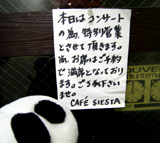 本日はコンサート
の為、特別営業
とさせて頂きます。
尚、お席はご予約
で満席となっており
ます。ご了承下さい
ませ。
CAFÉ SIESTA